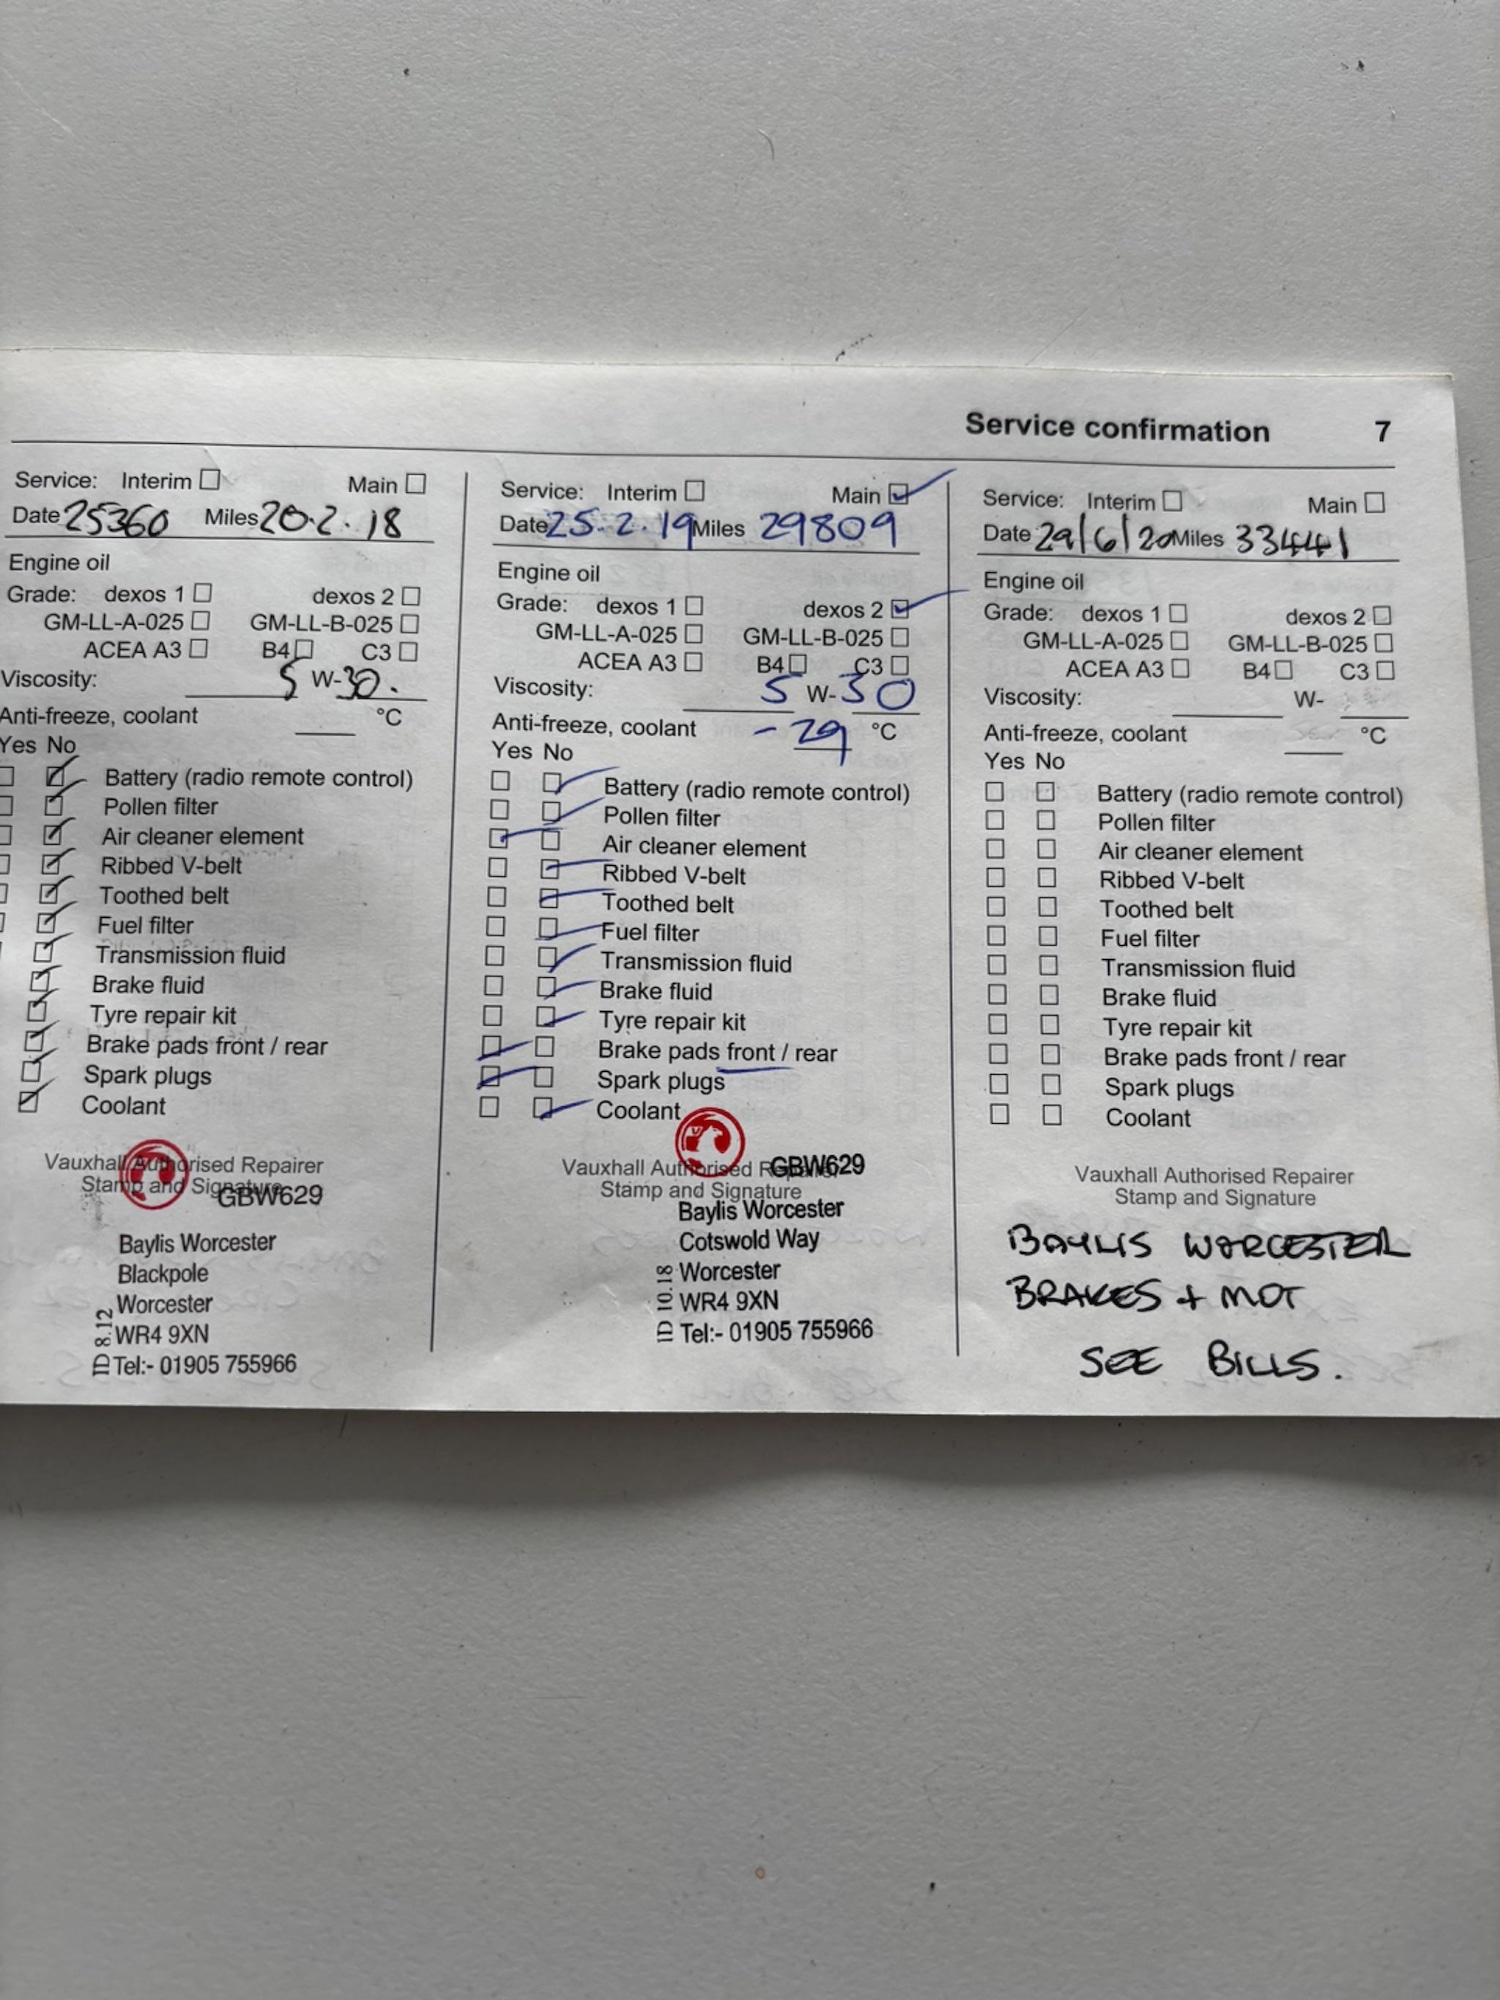 Service confirmation 7
Service: Interim Main
Date 25360 Miles 20.2.18
Engine oil
Grade: dexos 1 dexos 2
GM-LL-A-025 GM-LL-B-025
ACEA A3 B4 C3
Viscosity: 5 W-30.
Anti-freeze, coolant °C
Yes No
Battery (radio remote control)
Pollen filter
Air cleaner element
Ribbed V-belt
Toothed belt
Fuel filter
Transmission fluid
Brake fluid
Tyre repair kit
Brake pads front / rear
Spark plugs
Coolant
Vauxhall Authorised Repairer
Stamp and Signature
GBW629
Baylis Worcester
Blackpole
Worcester
WR4 9XN
Tel:- 01905 755966
ID 8.12
Service: Interim Main
Date 25.2.19 Miles 29809
Engine oil
Grade: dexos 1 dexos 2
GM-LL-A-025 GM-LL-B-025
ACEA A3 B4 C3
Viscosity: 5 W-30
Anti-freeze, coolant -29 °C
Yes No
Battery (radio remote control)
Pollen filter
Air cleaner element
Ribbed V-belt
Toothed belt
Fuel filter
Transmission fluid
Brake fluid
Tyre repair kit
Brake pads front / rear
Spark plugs
Coolant
Vauxhall Authorised Repairer
GBW629
Stamp and Signature
Baylis Worcester
Cotswold Way
Worcester
WR4 9XN
Tel:- 01905 755966
ID 10.18
Service: Interim Main
Date 29/6/20 Miles 33441
Engine oil
Grade: dexos 1 dexos 2
GM-LL-A-025 GM-LL-B-025
ACEA A3 B4 C3
Viscosity: W-
Anti-freeze, coolant °C
Yes No
Battery (radio remote control)
Pollen filter
Air cleaner element
Ribbed V-belt
Toothed belt
Fuel filter
Transmission fluid
Brake fluid
Tyre repair kit
Brake pads front / rear
Spark plugs
Coolant
Vauxhall Authorised Repairer
Stamp and Signature
BAYLIS WORCESTER
BRAKES + MOT
SEE BILLS.